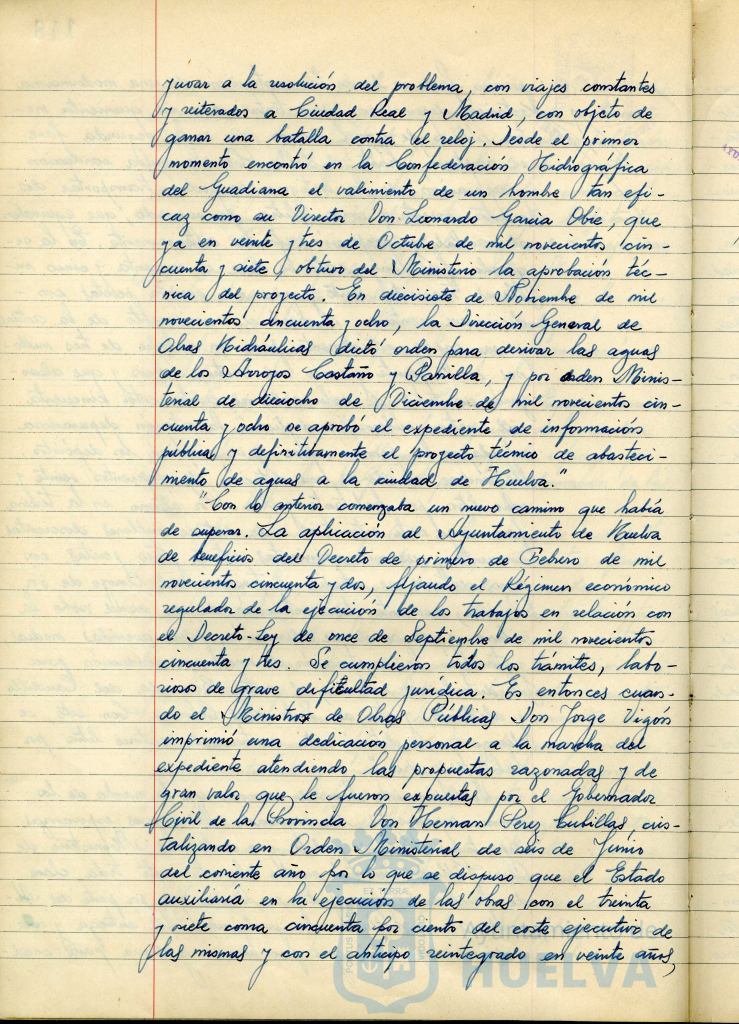 yuvar a la resolución del problema, con viajes constantes
y reiterados a Ciudad Real y Madrid, con objeto de
ganar una batalla contra el reloj. Desde el primer
momento encontró en la Confederación Hidrográfica
del Guadiana el valimiento de un hombre tan efi-
caz como su Director Don Leonardo Garcia Obie, que
ya en veinte y tres de Octubre de mil novecientos cin-
cuenta y siete, obtuvo del Ministerio la aprobación téc-
nica del proyecto. En diecisiete de Noviembre de mil
novecientos cincuenta y ocho, la Dirección General de
Obras Hidráulicas dictó orden para derivar las aguas
de los Arroyos Castaño y Panilla, y por orden Minis-
terial de dieciocho de Diciembre de mil novecientos cin-
cuenta y ocho se aprobó el expediente de información
pública y definitivamente el proyecto técnico de abasteci-
miento de aguas a la ciudad de Huelva."
"Con lo anterior comenzaba un nuevo camino que había
de superar. La aplicación al Ayuntamiento de Huelva
de beneficios del Decreto de primero de Febrero de mil
novecientos cincuenta y dos, fijando el Régimen económico
regulador de la ejecución de los trabajos en relación con
el Decreto-Ley de once de Septiembre de mil novecientos
cincuenta y tres. Se cumplieron todos los trámites, labo-
riosos de grave dificultad jurídica. Es entonces cuan-
do el Ministro de Obras Públicas Don Jorge Vigón
imprimió una dedicación personal a la marcha del
expediente atendiendo las propuestas razonadas y de
gran valor que le fueron expuestas por el Gobernador
Civil de la Provincia Don Hernan Perez Cubillas, cris-
talizando en Orden Ministerial de seis de Junio
del corriente año por lo que se dispuso que el Estado
auxiliaría en la ejecución de las obras con el treinta
y siete coma cincuenta por ciento del coste ejecutivo de
las mismas y con el anticipo reintegrado en veinte años,
Ayuntamiento de
HUELVA